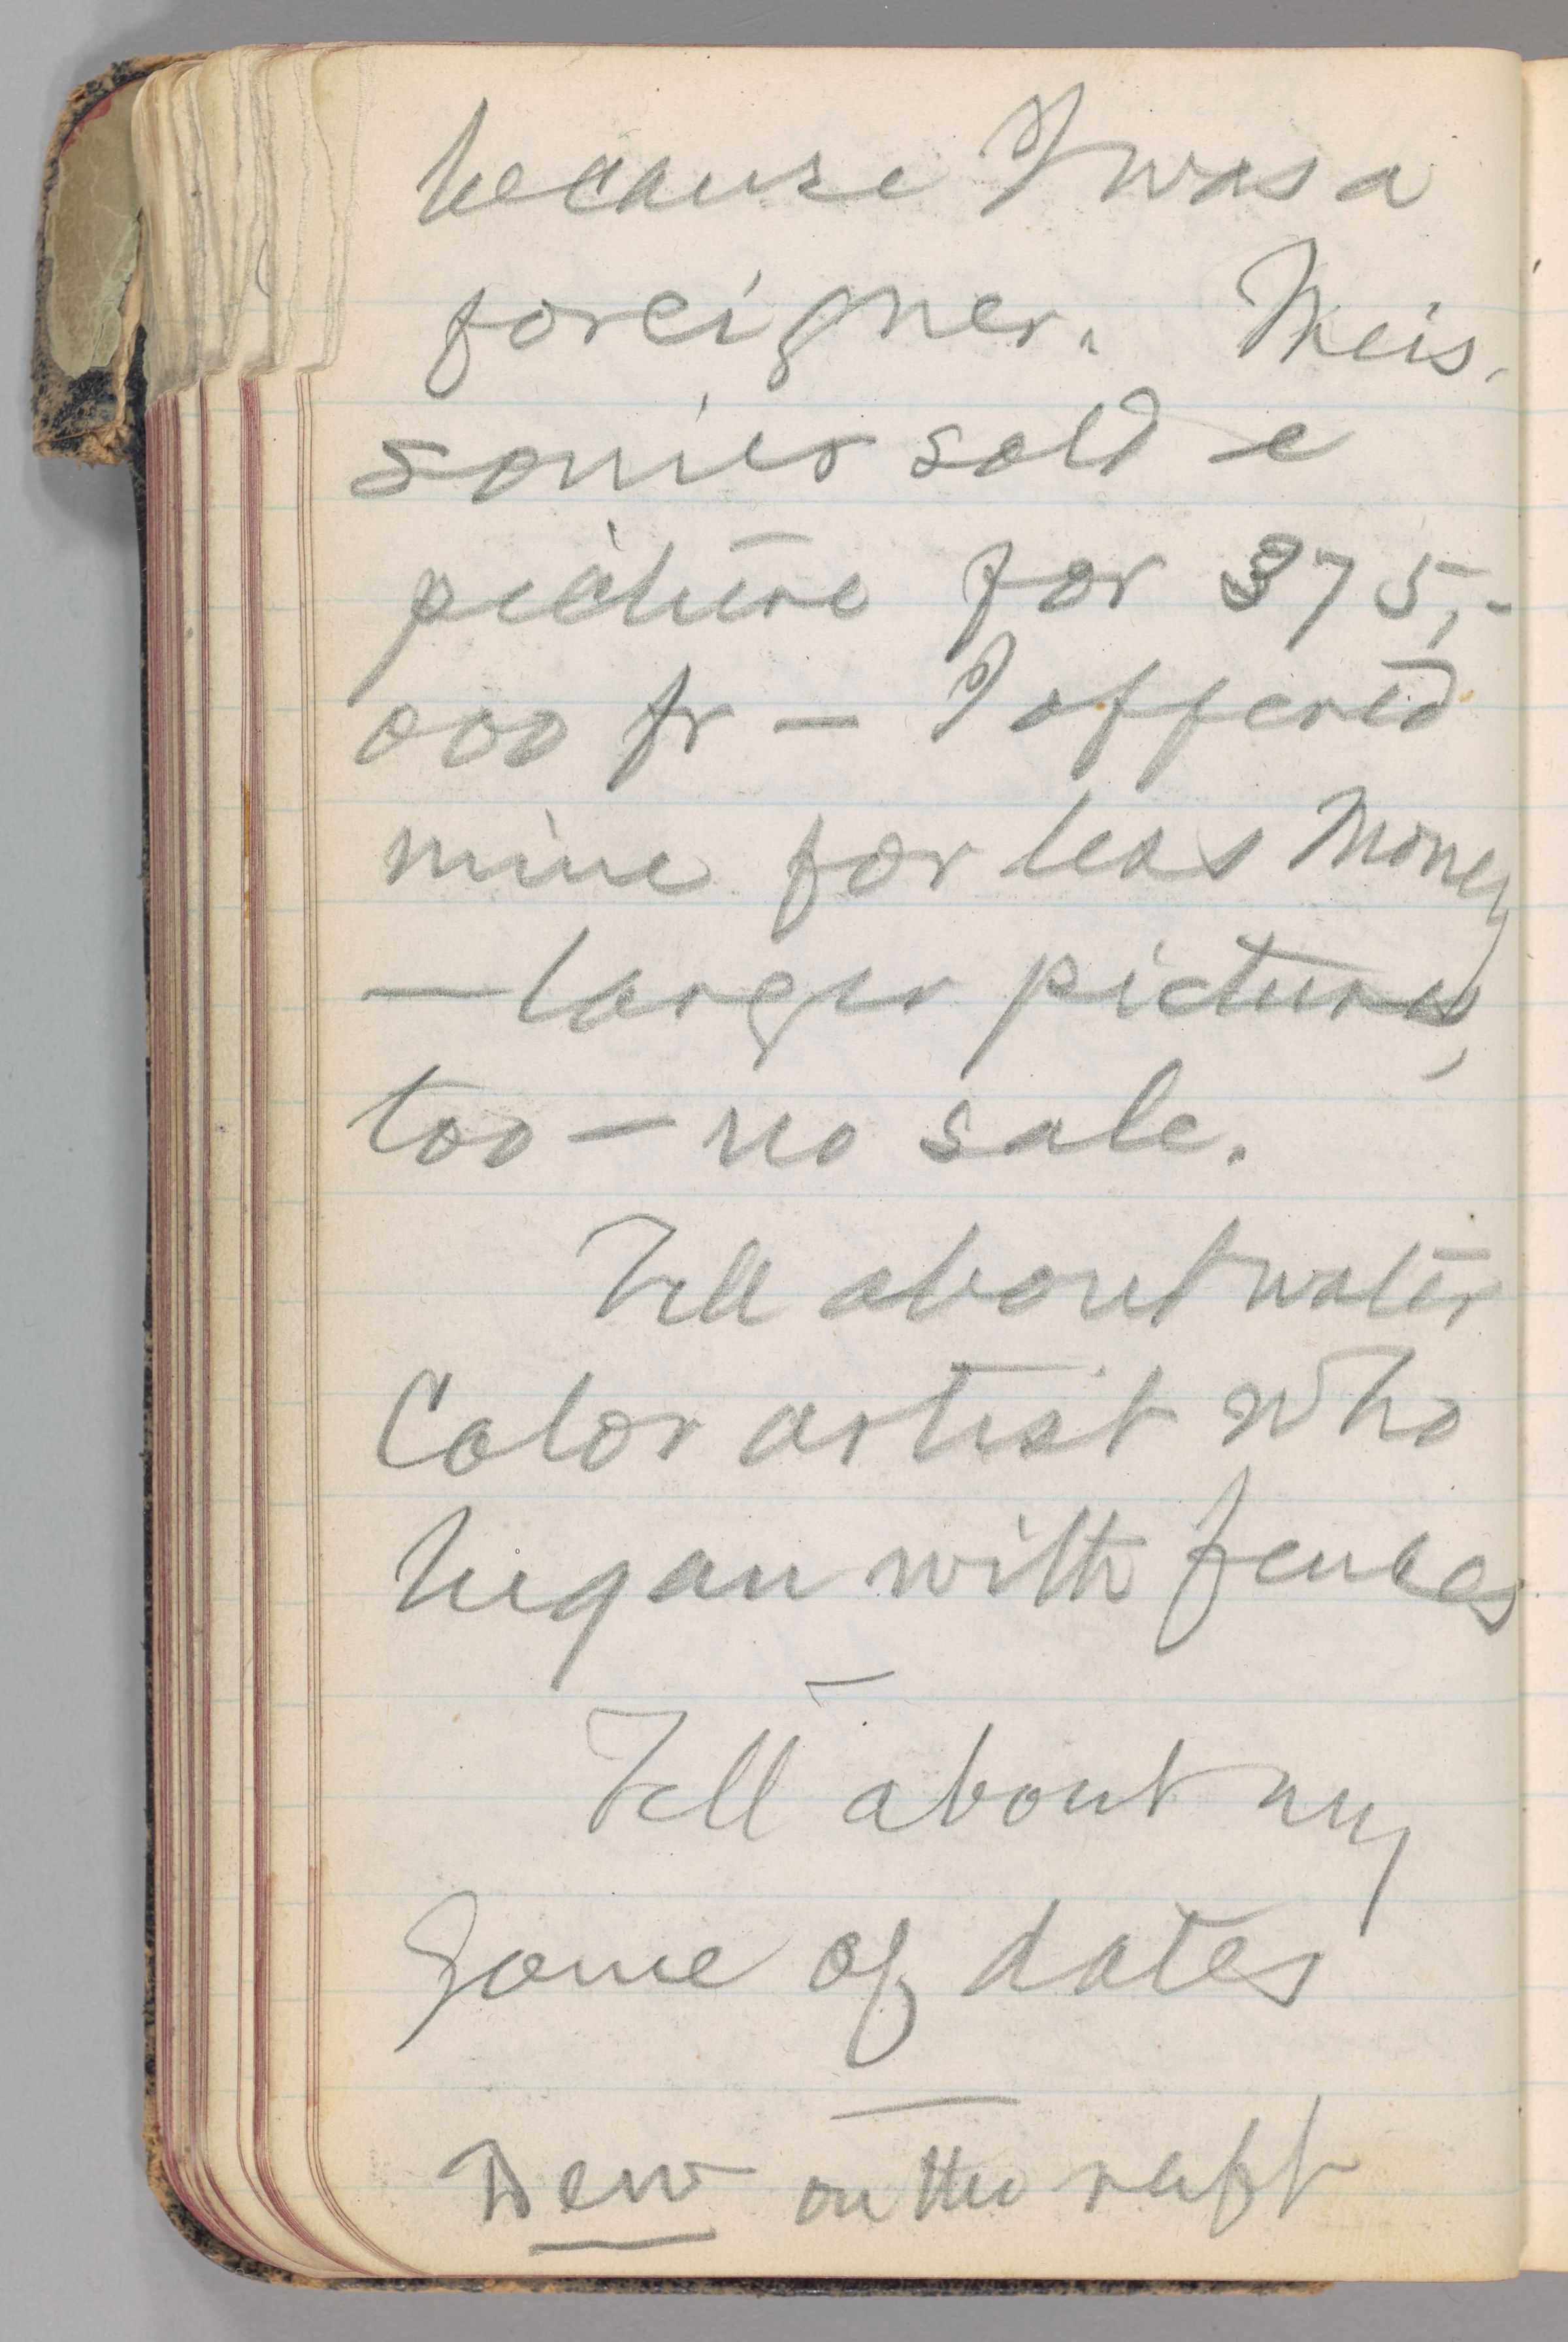 because I was a
foreigner. Meis-
sonier sold a
picture for 375,-
000 fr — I offered
mine for less money
— larger picture,
too — no sale.
Tell about water
Color artist who
began with fences
—
Tell about my
Game of dates
—
Dew on the raft